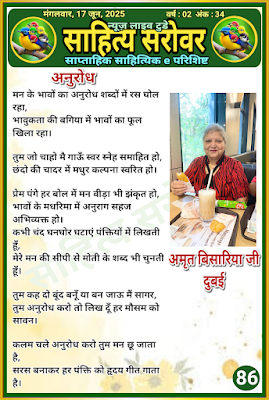 मंगलवार, 17 जून, 2025
वर्ष : 02 अंक : 34
न्यूज़ लाइव टुडे
साहित्य सरोवर
साप्ताहिक साहित्यिक e परिशिष्ट
अनुरोध
मन के भावों का अनुरोध शब्दों में रस घोल
रहा,
भावुकता की बगिया में भावों का फूल
खिला रहा।
तुम जो चाहो मै गाऊँ स्वर स्नेह समाहित हो,
छंदों की चादर में मधुर कल्पना स्वरित हो।
प्रेम पंगे हर बोल में मन वीड़ा भी झंकृत हो,
भावों के मधरिमा में अनुराग सहज
अभिव्यक्त हो।
कभी चंद घनघोर घटाएं पंक्तियों में लिखती
हूँ,
मेरे मन की सीपी से मोती के शब्द भी चुनती
हूँ।
तुम कह दो बूंद बनूँ या बन जाऊ मैं सागर,
तुम अनुरोध करो तो लिख दूँ हर मौसम को
सावन।
कलम चले अनुरोध करो तुम मन छू जाता
है,
सरस बनाकर हर पंक्ति को हृदय गीत गाता
है।
अमृत बिसारिया जी
दुबई
86